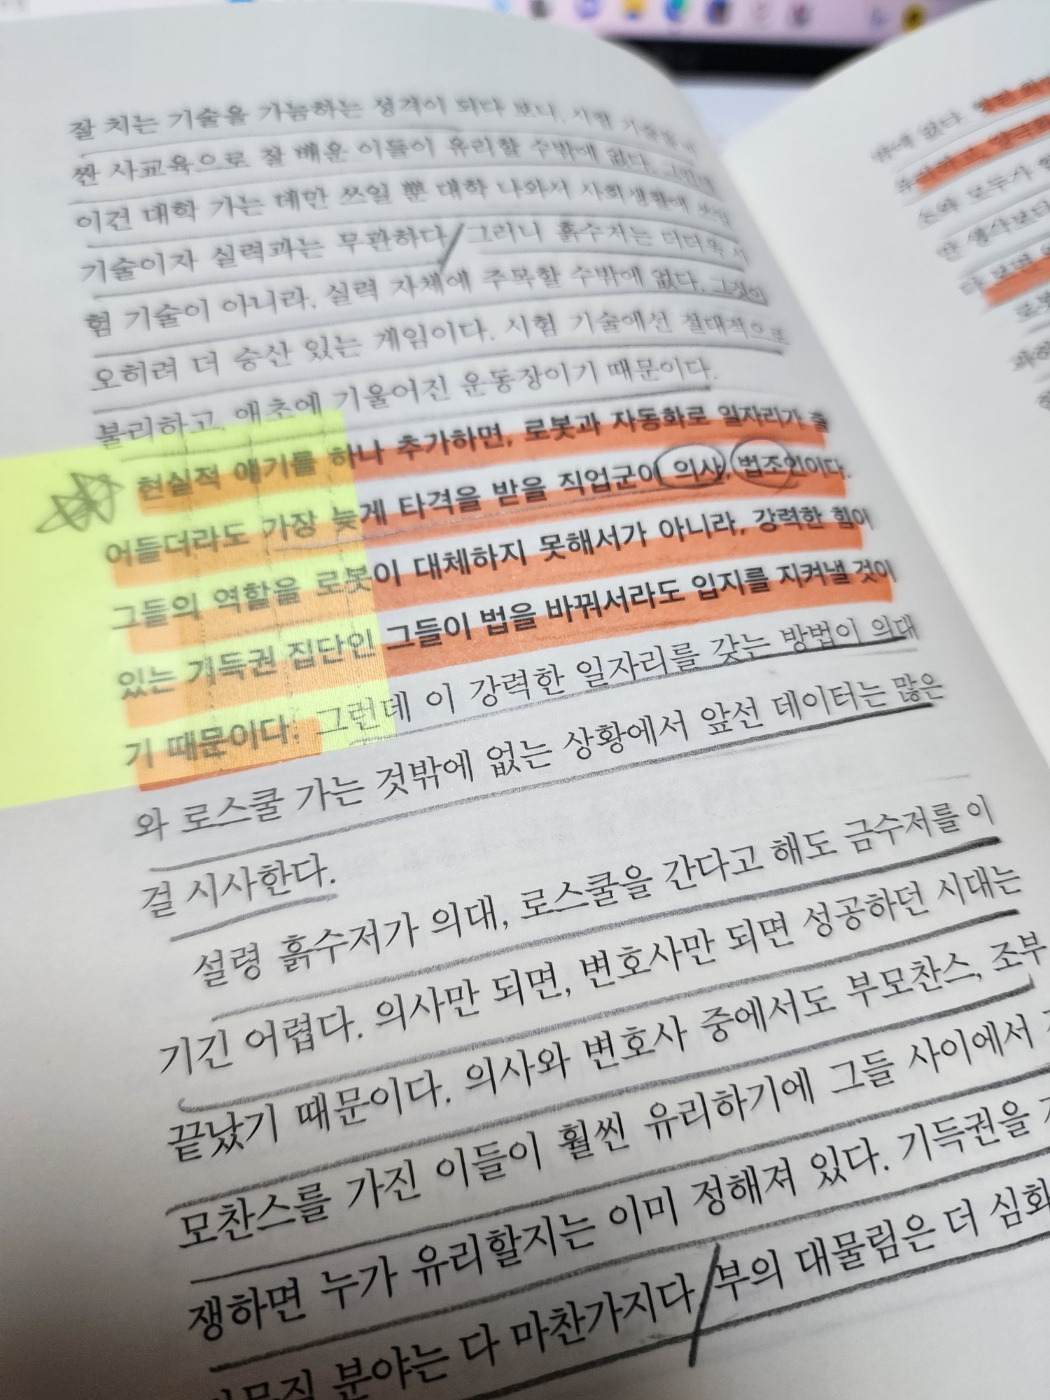 잘 치는 기술을 가늠하는 성격이 되다 보니, 시험 기술을
짠 사교육으로 잘 배운 이들이 유리할 수밖에 없다. 그런데
이건 대학 가는 데만 쓰일 뿐 대학 나와서 사회생활에
기술이자 실력과는 무관하다. 그러니 흙수저는 더더욱 시
험 기술이 아니라, 실력 자체에 주목할 수밖에 없다. 그것이
오히려 더 승산 있는 게임이다. 시험 기술에선 절대적으로
불리하고, 애초에 기울어진 운동장이기 때문이다.
현실적 얘기를 하나 추가하면, 로봇과 자동화로 일자리가 줄
어들더라도 가장 늦게 타격을 받을 직업군이 의사, 법조인이다.
그들의 역할을 로봇이 대체하지 못해서가 아니라, 강력한 힘이
있는 기득권 집단인 그들이 법을 바꿔서라도 입지를 지켜낼 것이
기 때문이다. 그런데 이 강력한 일자리를 갖는 방법이 의대
와 로스쿨 가는 것밖에 없는 상황에서 앞선 데이터는 많은
걸 시사한다.
설령 흙수저가 의대, 로스쿨을 간다고 해도 금수저를 이
기긴 어렵다. 의사만 되면, 변호사만 되면 성공하던 시대는
끝났기 때문이다. 의사와 변호사 중에서도 부모찬스, 조부
모찬스를 가진 이들이 훨씬 유리하기에 그들 사이에서
쟁하면 누가 유리할지는 이미 정해져 있다. 기득권을
분야는 다 마찬가지다. 부의 대물림은 더 심화
밖에 없다.
소와 모두가